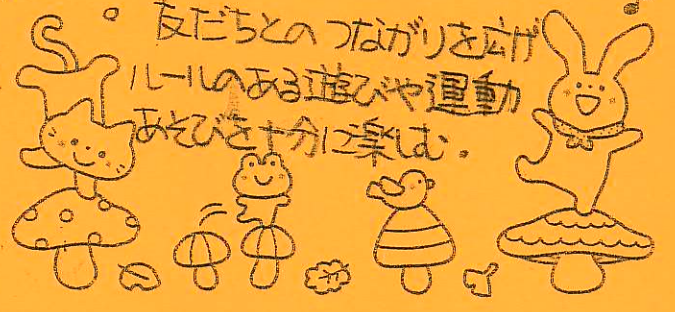 友だちとのつながりを広げ
ルールのある遊びや運動
あそびを十分に楽しむ。